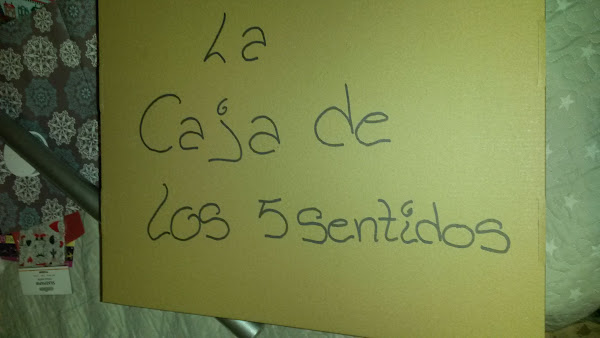 La
Caja de
Los 5 sentidos